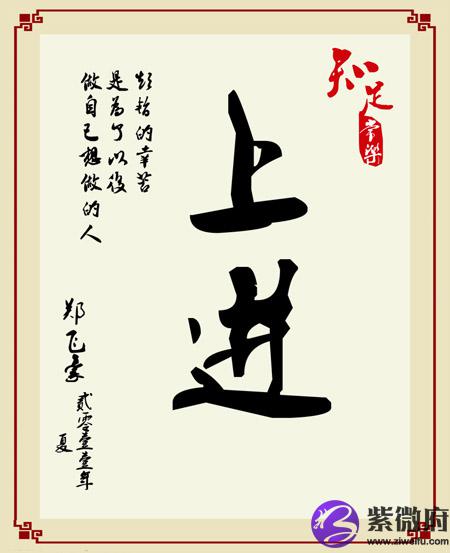 知足
常樂
上进
的幸苦
是为了以後
做自己想做的人
郑飞豪
贰零壹壹年
夏
紫微府
www.ziweifu.com